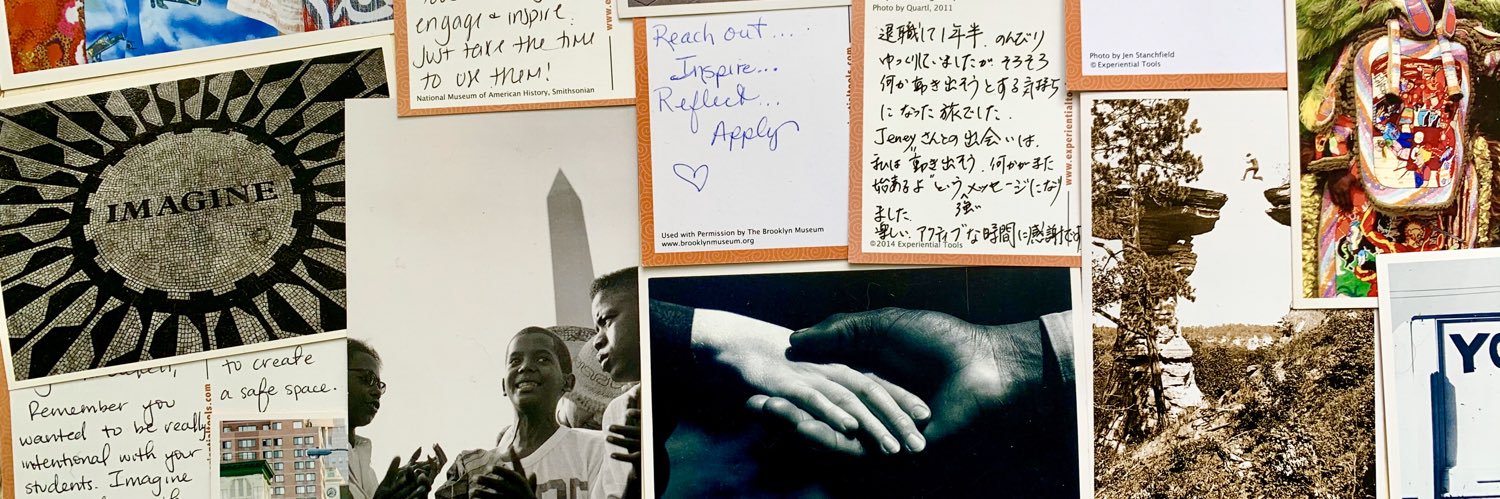 engage + inspire.
Just take the time
to use them!
National Museum of American History, Smithsonian
www.
Reach out....
Inspire...
Reflect...
Apply
Used with Permission by The Brooklyn Museum
www.brooklynmuseum.org
Photo by Quartl, 2011
退職して1年半、のんびり
ゆっくりしていましたが そろそろ
何か動き出そうとする気持ち
になった旅でした。
Jeneyさんとの出会いは、
私は"動き出そう、何かがまた
始まるよ"という強いメッセージになり
ました。
楽しい、アクティブな時間に感謝です
©2014 Experiential Tools
www.experiential
Photo by Jen Stanchfield
© Experiential Tools
IMAGINE
to create
a safe space.
Remember you
wanted to be really
intentional with your
students. Imagine
tialtools.com
YO